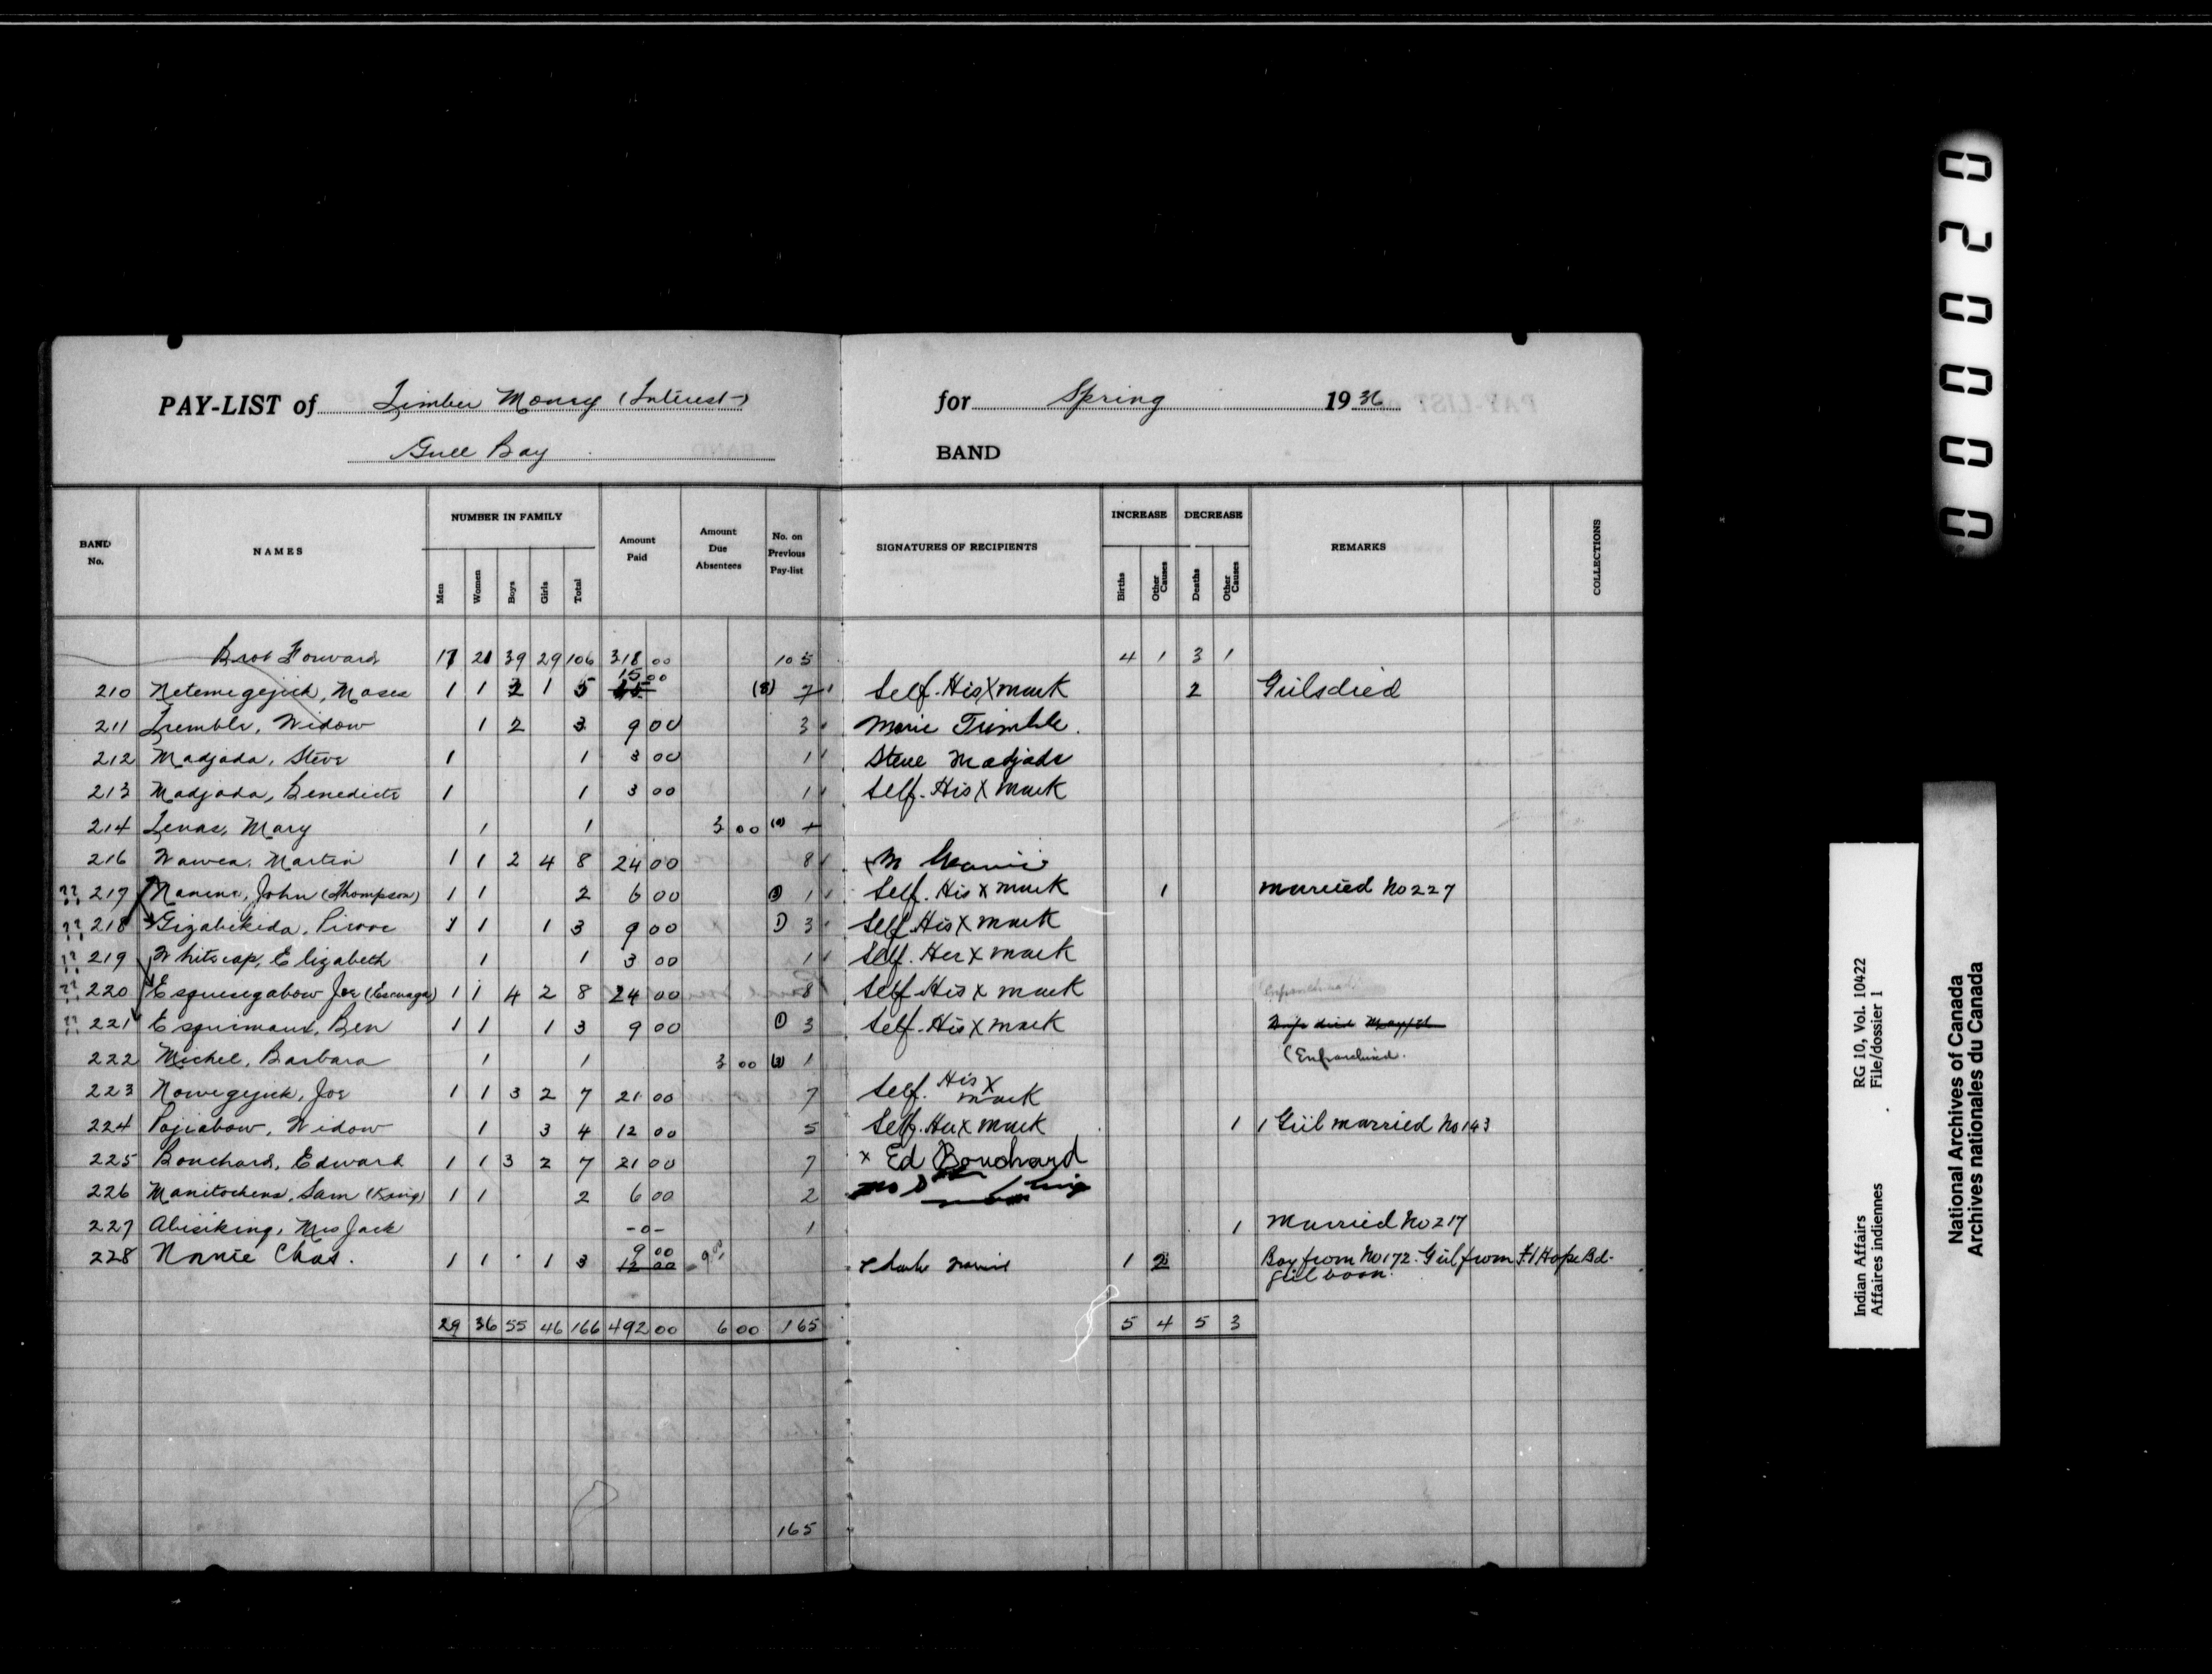 PAY-LIST of Timber Money (Interest) for Spring 1936
Gull Bay BAND
BAND No. NAMES NUMBER IN FAMILY Men Women Boys Girls Total Amount Paid Amount Due Absentees No. on Previous Pay-list SIGNATURES OF RECIPIENTS INCREASE Births Other Causes DECREASE Deaths Other Causes REMARKS COLLECTIONS
Brot Forward 17 21 39 29 106 318 00 105 4 1 3 1
210 Netemegejick, Moses 1 1 2 1 5 15 00 (8) 7 Self. His X mark 2 Girls died
211 Tremble, Widow 1 2 3 9 00 3 Marie Trimble.
212 Madjada, Steve 1 1 3 00 1 Steve Madjade
213 Madjada, Benedicte 1 1 3 00 1 Self. His X mark
214 Mary 1 1 3 00 (0)
216 Wawea, Martin 1 1 2 4 8 24 00 8
217 Nanene, John (Thompson) 1 1 2 6 00 1 Self. His X mark 1 married No 227
218 Gizabikida, Pierre 1 1 1 3 9 00 3 Self. His X mark
219 Whitecap, Elizabeth 1 1 3 00 1 Self. Her X mark
220 Esquesegabow Joe 1 1 4 2 8 24 00 8 Self His X mark
221 Esquimaux, Ben 1 1 1 3 9 00 3 Self. His X mark Wife died
222 Michel, Barbara 1 1 3 00 1 (Enfranchised.
223 Nowegejick, Joe 1 1 3 2 7 21 00 7 Self. His X mark
224 Pojiabow, Widow 1 3 4 12 00 5 Self. Her X mark 1 1 Girl married No 143
225 Bouchard, Edward 1 1 3 2 7 21 00 7 X Ed Bouchard
226 Manitochens, Sam (King) 1 1 2 6 00 2
227 Abisiking, Mrs Jack -0- 1 1 Married No 217
228 Nanie Chas. 1 1 1 3 9 00 12 00 1 2 Boy from No 172. Girl from Ft Hope Bd.
Girl born.
29 36 55 46 166 492 00 6 00 165 5 4 5 3
165
000020
Indian Affairs RG 10, Vol. 10422
Affaires indiennes File/dossier 1
National Archives of Canada
Archives nationales du Canada